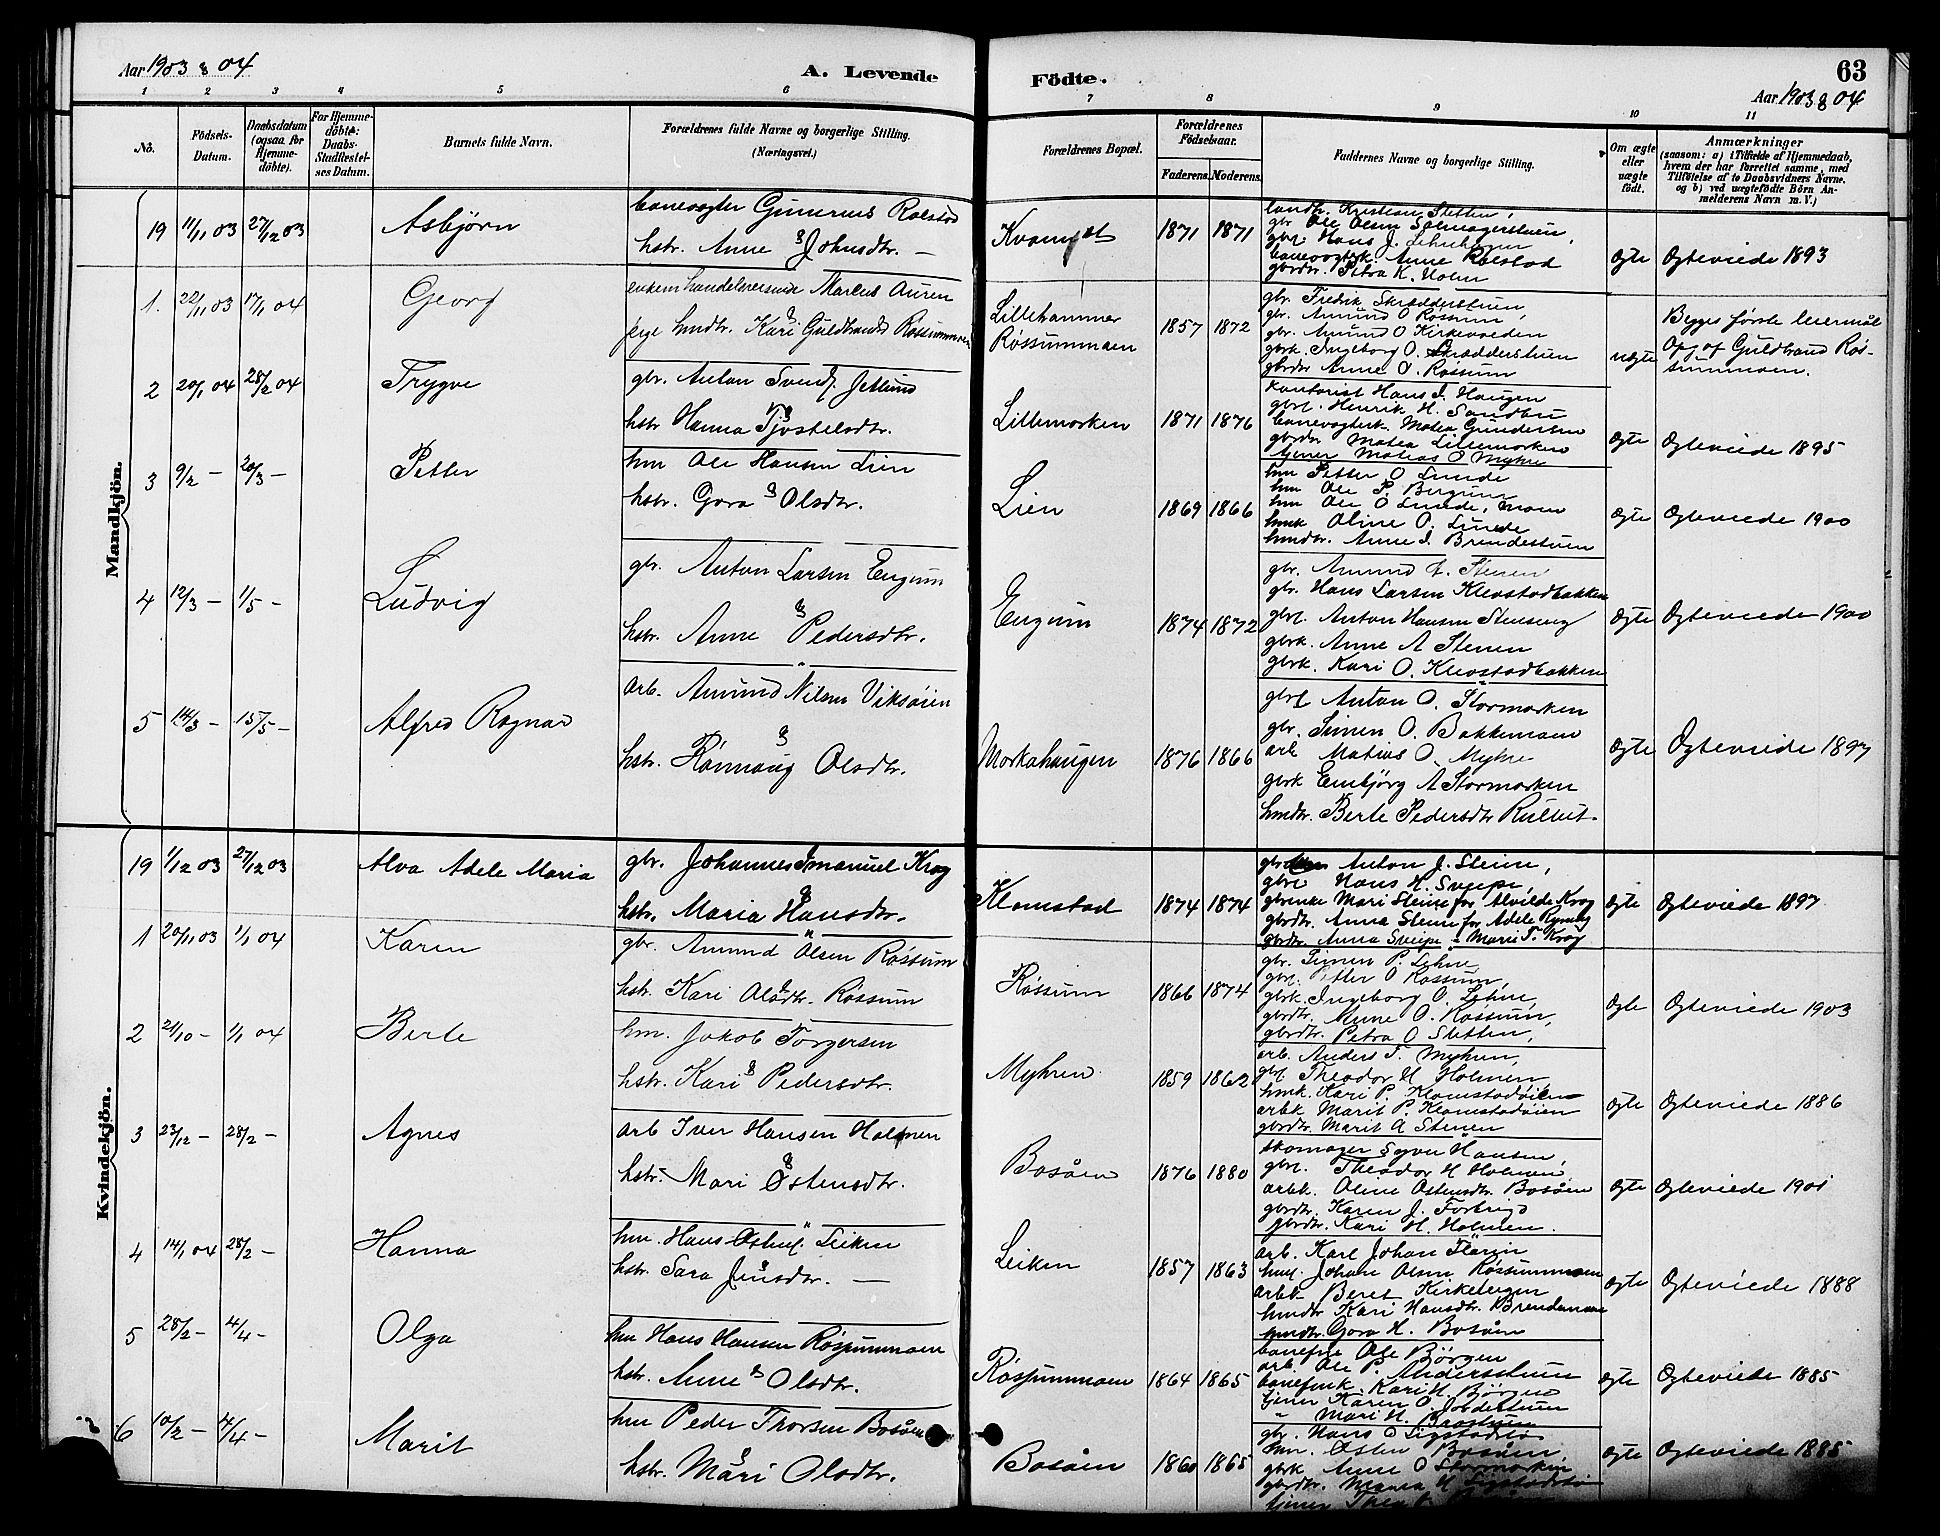 Aar 1903 & 04
A. Levende
Födte.
63
Aar 1903 & 04
1 2 3 4 5 6 7 8 9 10 11
No.
Födsels-Datum.
Daabsdatum (ogsaa for Hjemmedöbte).
For Hjemmedöbte: Daabs-Stadfæstelses Datum.
Barnets fulde Navn.
Forældrenes fulde Navne og borgerlige Stilling. (Næringsvei.)
Forældrenes Bopæl.
Forældrenes Födselsaar.
Faderens. Moderens.
Faddernes Navne og borgerlige Stilling.
Om ægte eller uægte födt.
Anmærkninger
(saasom: a) i Tilfælde af Hjemmedaab, hvem der har forrettet samme, med Tilföielse af to Daabsvidners Navne, og b) ved uægtefödte Börn Anmelderens Navn m. V.)
Mandkjön.
19 11/11 03 27/12 03 Asbjørn
banevogter Gunerius Rolstad
& hstr. Anne Johnsdtr. —
1871 1871
landh. Kristian Stetten,
gbr. Ole Olsen
gbrf. Hans J.
banevogterk. Anne Rolstad
gbrdtr. Petra K. Holm
Ægte Ægteviede 1893
1. 22/11 03 17/1 04 Georg
enkem. handelsreisende Marcus Auren
& pige hmdtr. Kari Guldbrandsd. Røssummoen
Lillehammer
Røssummoen
1857 1872
gbr. Fredrik Skrædderstuen
gbr. Amund O Røssum,
gbr. Amund O Kirkesveden
gbrk. Ingeborg O. Skrædderstuen
gbrdtr Anne O. Røssum
uægte
Begges første leiermål
Opg. af Guldbrand Røs-
summoen.
2 20/1 04 28/2 04 Trygve
gbr. Anton Svends. Jetlund
& hstr Hanna Tjøstelsdtr.
Lillemorken
1871 1876
kontorist Hans J. Haugen
gbrf. Henrik H. Sandbu
banevogterk. Matea Gundersen
gbrdtr Matea Lillemorken
tjener Matias O Myhre
Ægte Ægteviede 1895
3 9/2 — 20/3 — Petter
hm Ole Hansen Lien
& hstr. Gora Olsdtr.
Lien
1869 1866
hm Petter O Lunde
hm Ole P. Bergum
hm Ole O Lunde,
hmk Oline O. Lunde
hmdtr. Anne J. Brendestuen
Ægte Ægteviede 1900
4 12/3 — 1/5 — Ludvig
gbr. Anton Larsen Engum
& hstr. Anne Pedersdtr.
Engum
1874 1872
gbr. Amund A. Stenen
gbr. Hans Larsen Klevstadbakken
gbrf. Anton Hansen Stenseng
gbrk. Anne A Stenen
gbrk. Kari O. Klevstadbakken
Ægte Ægteviede 1900
5 14/3 — 15/5 — Alfred Ragnar
arb. Amund Nilsen Viksøien
& hstr. Rønnaug Olsdtr.
Morkahaugen
1876 1866
gbrf Anton O. Stormorken
gbr. Simen O. Bakkemoen
arb. Matias O. Myhre
gbrk Embjørg A Stormorken
hmdtr. Berte Pedersdtr Rullut
Ægte Ægteviede 1897
Kvindekjön.
19 1/12 03 27/12 03 Alva Adele Maria
gbr. Johannes Imanuel Krog
& hstr. Maria Hansdtr.
Klomstad
1874 1874
Anton J. Steine,
gbrf Hans H. Sveipe,
gbrenke Mari Steine for Alvilde Krog
gbrdtr. Anna Steine for Adele
gbrdtr. Anna Sveipe — Marie T. Krog
Ægte Ægteviede 1897
1 20/11 03 1/1 04 Karen
gbr. Amund Olsen Røssum
& hstr. Kari Olsdtr. Røssum
Røssum
1866 1874
gbr. Simen P. Lehne,
gbrf. Petter O Røssum,
gbrk. Ingeborg O. Lehne,
gbrdtr. Anne O. Røssum,
gbrdtr. Petra O Stetten,
Ægte Ægteviede 1903
2 21/10 — 1/1 04 Berte
hm. Jakob Torgersen
& hstr. Kari Pedersdtr.
Myhren
1859 1862
arb. Anders T. Myhren,
gbrf. Theodor H Holmen
hmk. Kari P. Klomstadøien
arbk Marit P. Klomstadøien
gbrdtr. Marit A Stenen
Ægte Ægteviede 1886
3 23/12 — 28/2 — Agnes
arb Iver Hansen Holmen
& hstr. Mari Østensdtr.
Bosåen
1876 1880
skomager Syver Hansen,
gbrf. Theodor H Holmen
arbk. Oline Østensdtr. Bosåen
gbrdtr. Karen J. Forbrigd
gbrdtr. Kari H. Holmen.
Ægte Ægteviede 1901
4 14/1 04 28/2 — Hanna
hm. Hans Østens. Leiken
& hstr. Sara Jensdtr. —
Leiken
1857 1863
arb. Karl Johan Flåren
hmf. Johan Olsen Røssummoen
arbk Beret Kirkebergen
hmdtr Kari Hansdtr. Brendemoen
hmdtr. Gora H. Bosåen
Ægte Ægteviede 1888
5 28/2 — 4/4 — Olga
hm Hans Hansen Røssummoen
& hstr. Anne Olsdtr.
Røssummoen
1864 1865
Ole Børgen
arb. Ole P. Andersstuen
Kari H. Børgen
tjener Karen O. Jordestuen
" Mari H. Bråstuen
Ægte Ægteviede 1885
6 10/2 — 4/4 — Marit
hm Peder Thorsen Bosåen
& hstr. Mari Olsdtr.
Bosåen
1860 1865
gbr. Hans O Sigstadstø
hm. Østen Bosåen
gbrk Anne O Stormorken
gbrdtr. H Sigstadstø
tjener Thea
Ægte Ægteviede 1885